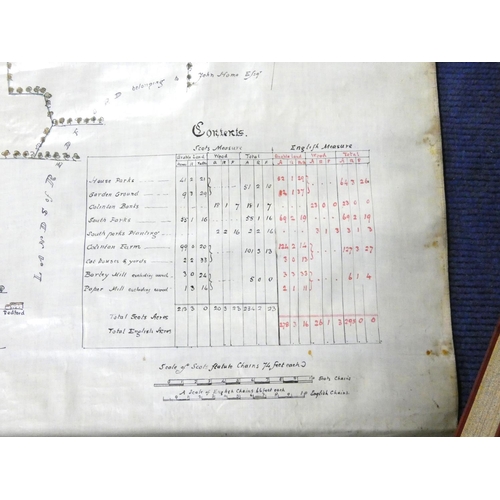 belonging John Home Esqr
LANDS of
Contents.
Scots Measure English Measure
Arable Land Wood Total Arable Land Wood Total
A R F A R F A R F A R F
House Parks 41 2 21
51 2 10 64 3 26
Garden Ground 9 3 29
Colinton Banks 18 1 7 18 1 7 23 0 0 23 0 0
South Parks 55 1 16 55 1 16 69 2 19 69 2 19
South parks Planting 2 2 16 2 2 16 3 1 3 3 1 3
Colinton Farm 99 0 20 124 2 14
101 3 13 127 3 27
Cot Houses & yards 2 2 33
Barley Mill excluding wood 3 0 26 3 3 33
5 0 0 6 1 4
Paper Mill excluding wood 1 3 14 2 1 11
Total Scots Acres 213 3 0 20 3 23 234 2 23
Total English Acres 278 3 14 26 1 3 295 0 0
Scale of Scots Statute Chains 74 feet each
Scots Chains
A Scale of English Chains 66 feet each
English Chains